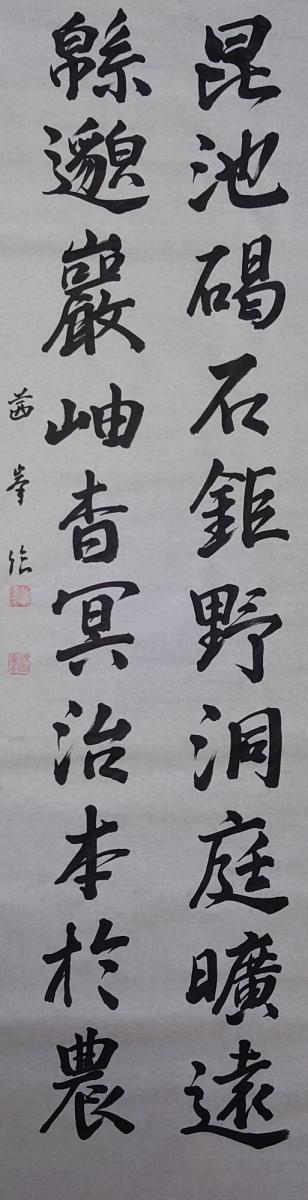 昆池碣石鉅野洞庭曠遠
緜邈巖岫杳冥治本於農
茜峯